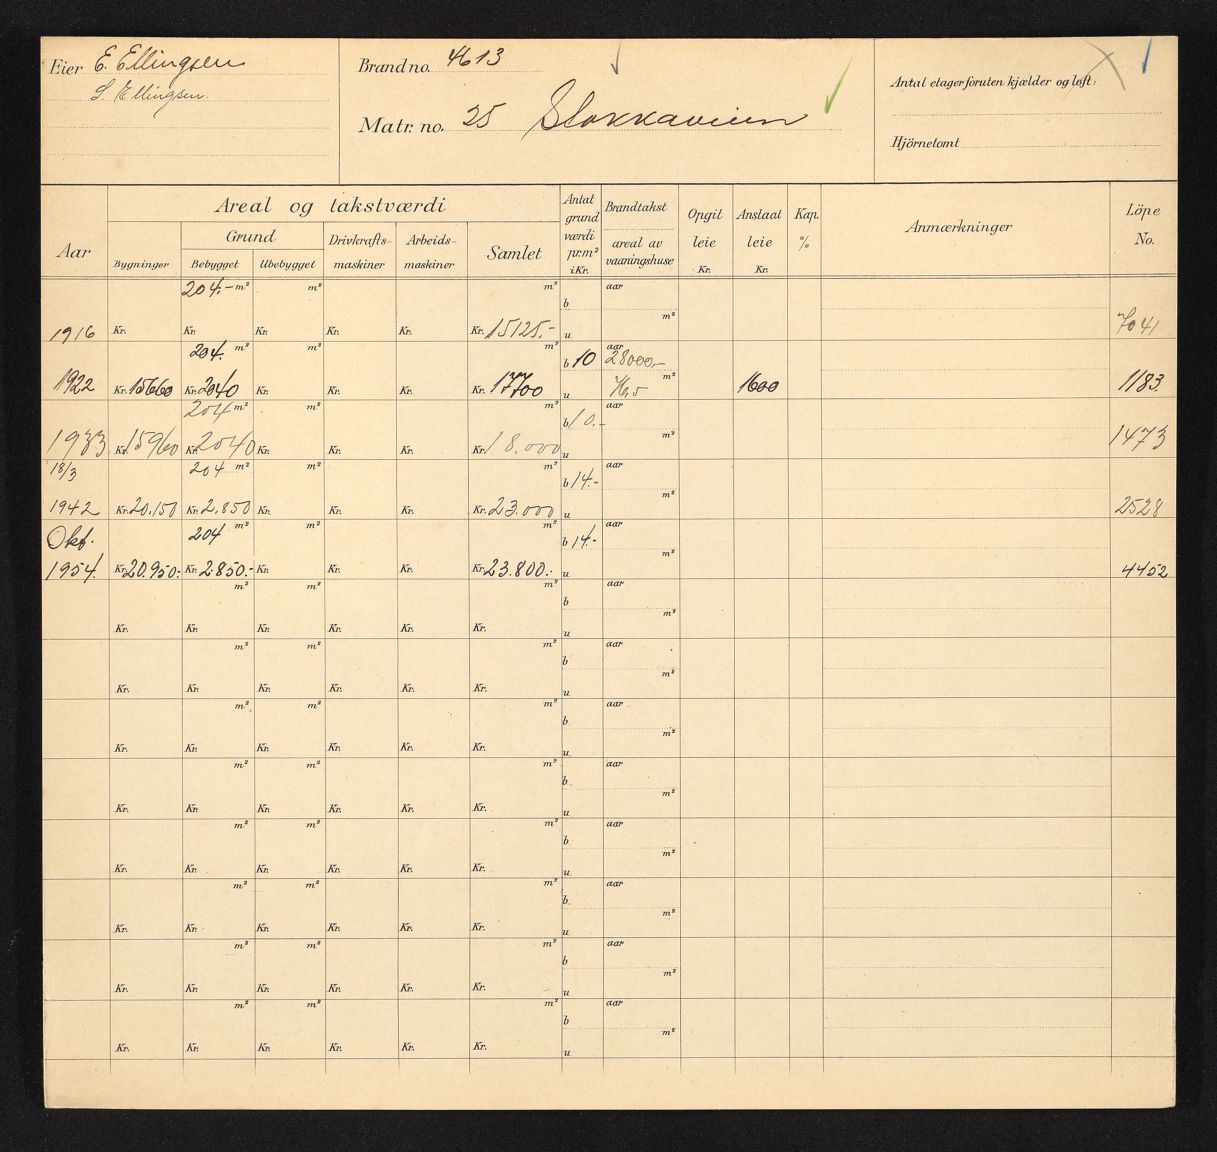 Eier E. Ellingsen
S. Ellingsen
Brand no. 4613
Matr. no. 25 Stokkaveien
Antal etager foruten kjælder og loft:
Hjörnetomt
Aar
Areal og takstværdi
Grund
Bygninger
Bebygget
Ubebygget
Drivkrafts-
maskiner
Arbeids-
maskiner
Samlet
Antat
grund
værdi
pr. m²
i Kr.
Brandtakst
areal av
vaaningshuse
Opgit
leie
Kr.
Anslaat
leie
Kr.
Kap.
%
Anmærkninger
Löpe
No.
204.- m² m² m² b aar
1916 Kr. Kr. Kr. Kr. Kr. Kr. 15125.- u m² 7041
204. m² m² m² b 10 aar 28000.-
1922 Kr. 15660 Kr. 2040 Kr. Kr. Kr. Kr. 17700 u m² 1600 1183.
204 m² m² m² b 10.- aar
1933 Kr. 15960 Kr. 2040 Kr. Kr. Kr. Kr. 18.000 u m² 1473
18/3 204 m² m² m² b 14.- aar
1942 Kr. 20.150 Kr. 2.850 Kr. Kr. Kr. Kr. 23.000 u m² 2528
Okt. 204 m² m² m² b 14.- aar
1954. Kr. 20.950.- Kr. 2.850.- Kr. Kr. Kr. Kr. 23.800.- u m² 4452
m² m² m² b aar
Kr. Kr. Kr. Kr. Kr. Kr. u m²
m² m² m² b aar
Kr. Kr. Kr. Kr. Kr. Kr. u m²
m² m² m² b aar
Kr. Kr. Kr. Kr. Kr. Kr. u m²
m² m² m² b aar
Kr. Kr. Kr. Kr. Kr. Kr. u m²
m² m² m² b aar
Kr. Kr. Kr. Kr. Kr. Kr. u m²
m² m² m² b aar
Kr. Kr. Kr. Kr. Kr. Kr. u m²
m² m² m² b aar
Kr. Kr. Kr. Kr. Kr. Kr. u m²
m² m² m² b aar
Kr. Kr. Kr. Kr. Kr. Kr. u m²